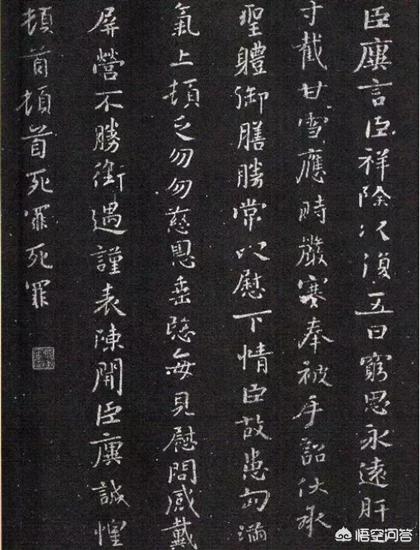 臣廙言臣祥除以復五日窮思永遠肝
寸截甘雪應時嚴寒奉被手詔伏承
聖體御膳勝常以慰下情臣故患匈滿
氣上頓乏勿勿慈恩垂愍每見慰問感戴
屏營不勝銜遇謹表陳聞臣廙誠惶
頓首頓首死罪死罪
悟空问答